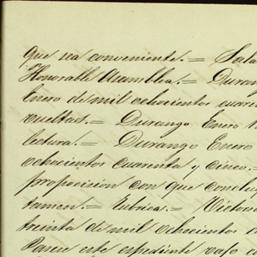 que sea conveniente.= Sala
Honorable Asamblea.= Duran
Enero de mil ochocientos cuare
vueltas.= Durango Enero
lectura.= Durango Enero
ochocientos cuarenta y cinco.=
proposicion con que conclu
tamen.= Rubrica.= Victor
treinta de mil ochocientos
Pase este espediente